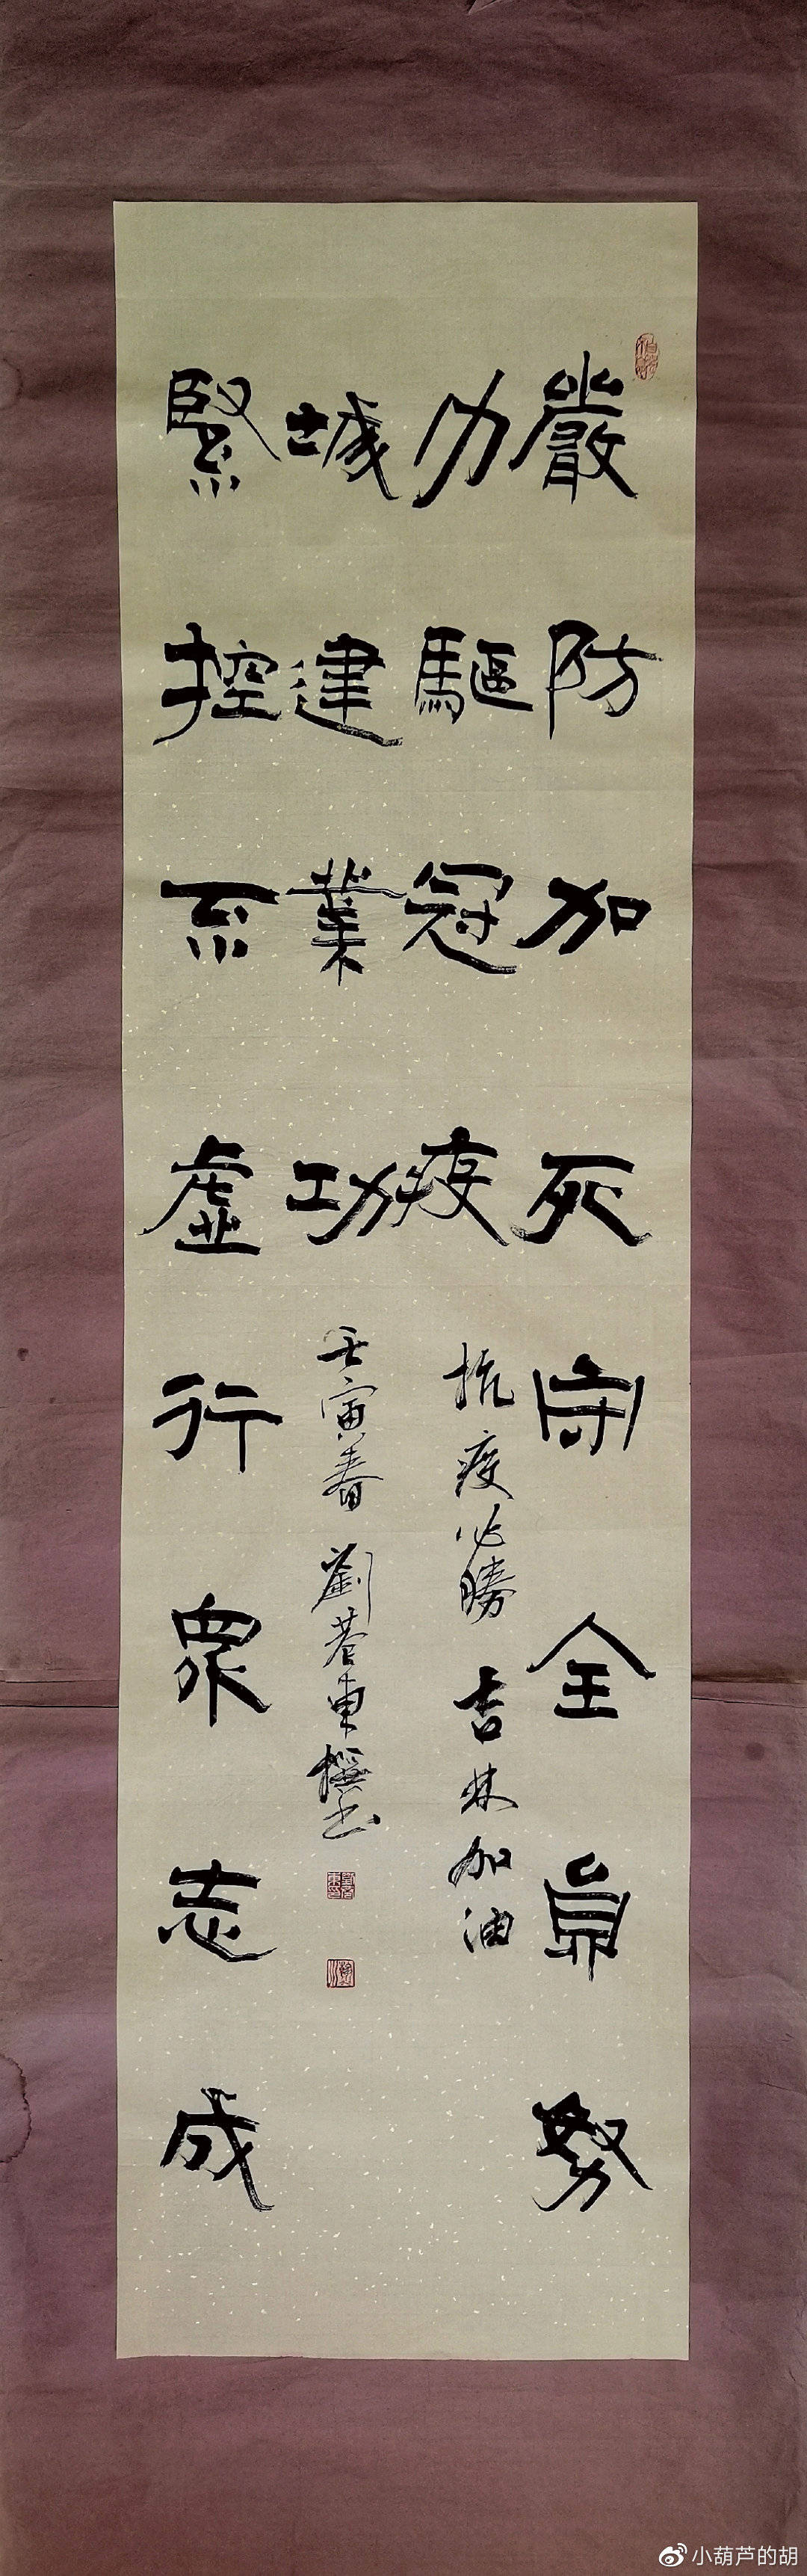 嚴防加死守全員努
力驅冠疫
抗疫必勝 吉林加油
緊控不虛行眾志成
城建業功
壬寅春 劉東撰書
小葫芦的胡